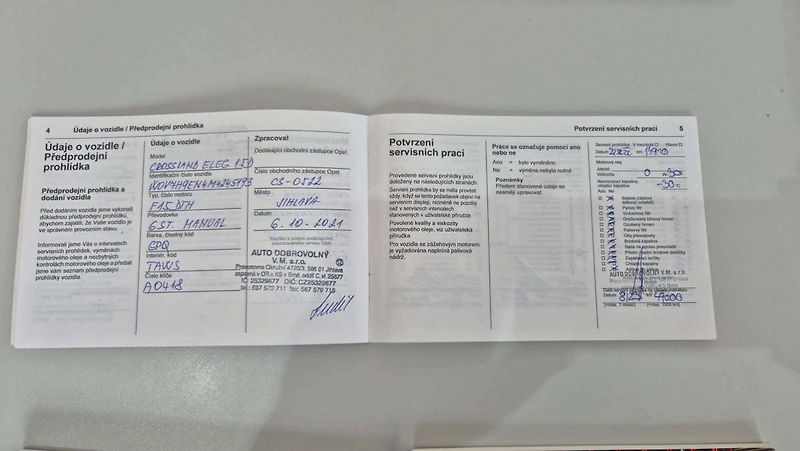 4 Údaje o vozidle / Předprodejní prohlídka
Údaje o vozidle /
Předprodejní
prohlídka
Předprodejní prohlídka a
dodání vozidla
Před dodáním vozidla jsme vykonali
důkladnou předprodejní prohlídku,
abychom zajistili, že Vaše vozidlo je
ve správném provozním stavu.
Informovali jsme Vás o intervalech
servisních prohlídek, výměnách
motorového oleje a nezbytných
kontrolách motorového oleje a předali
jsme vám seznam předprodejní
prohlídky vozidla.
Údaje o vozidle
Model
CROSSLAND ELEG 1.5D
Identifikační číslo vozidla
Typ, číslo motoru
F15DTH
Převodovka
6ST. MANUAL
Barva, číselný kód
GPQ
Interiér, kód
TAWS
Číslo klíče
A0418
Zpracoval
Dodávající obchodní zástupce Opel
Číslo obchodního zástupce Opel
CS-0522
Město
JIHLAVA
Datum
6.10.2021
AUTO DOBROVOLNÝ
V. M. s.r.o.
Provozovna Okružní 4720/3, 586 01 Jihlava
zapsaná v OR u KS v Brně, oddíl C, vl. 25577
IČ: 25329677 DIČ: CZ25329677
tel.: 567 579 711 fax: 567 579 715
Potvrzení servisních prací 5
Potvrzení
servisních prací
Provedené servisní prohlídky jsou
doloženy na následujících stránkách.
Servisní prohlídky by se měla provést
vždy, když se tento požadavek objeví na
servisním displeji, nicméně ne později,
než v servisních intervalech
stanovených v uživatelské příručce.
Povolené kvality a viskozity
motorového oleje, viz uživatelská
příručka.
Pro vozidla se zážehovým motorem
je vyžadována naplnila palivová
nádrž.
Práce se označuje pomocí ano
nebo ne
Ano = bylo vyměněno
Ne = výměna nebyla nutná
Poznámky
Předem stanovené údaje se
nesmějí upravovat.
Servisní prohlídka: V mezidobí Hlavní
Datum km
Motorový olej
Jakost
Viskozita 0 W 30
Nemrznoucí kapalina,
chladicí kapalina
-30 °C
Ano Ne
Pylový filtr
Vzduchový filtr
Palivový filtr
Olej převodovky
Brzdová kapalina
Sada na opravu pneumatik
Zapalovací svíčky
Chladicí kapalina
AUTO DOBROVOLNÝ V.M. s.r.o.
Datum km
(+max. 1 měsíc) (+max. 1000 km)